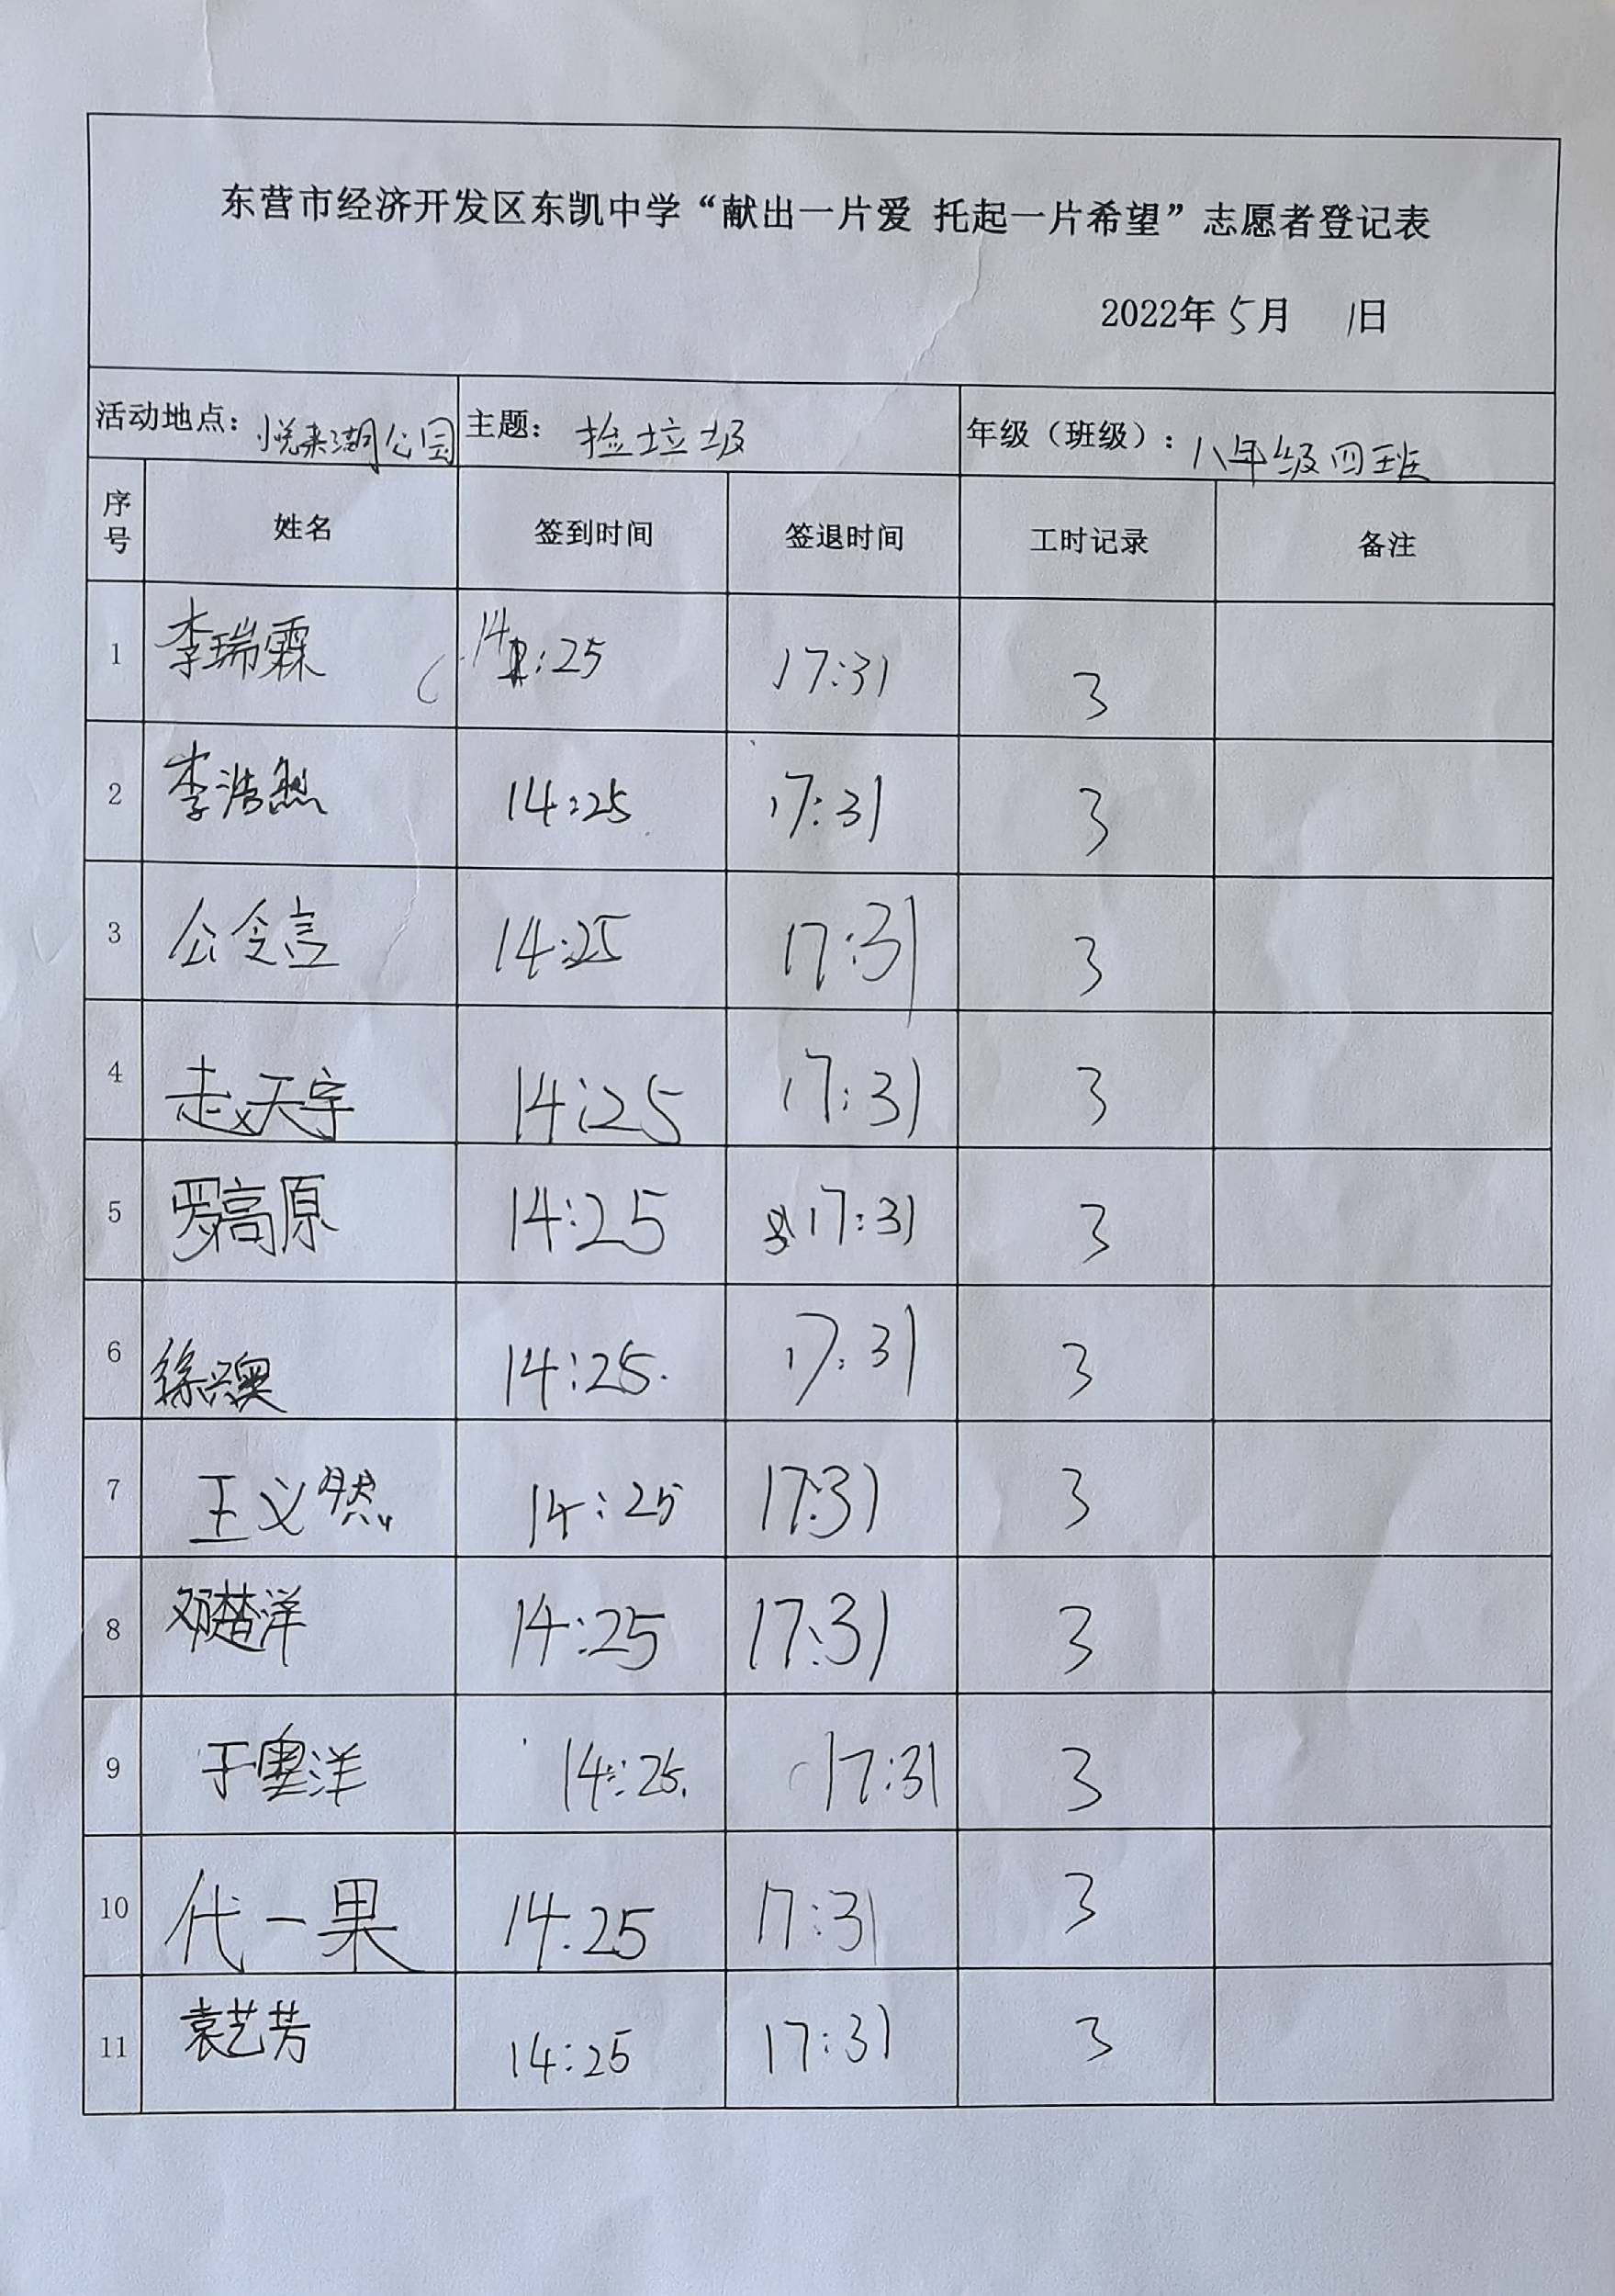 东营市经济开发区东凯中学“献出一片爱 托起一片希望”志愿者登记表
2022年5月 1日
活动地点：悦来湖公园 主题：捡垃圾 年级（班级）：八年级四班
序号 姓名 签到时间 签退时间 工时记录 备注
1 李瑞霖 14:25 17:31 3
2 李浩然 14:25 17:31 3
3 公令言 14:25 17:31 3
4 赵天宇 14:25 17:31 3
5 罗高原 14:25 17:31 3
6 徐兴奥 14:25 17:31 3
7 王义然 14:25 17:31 3
8 邓楚洋 14:25 17:31 3
9 于洋 14:25 17:31 3
10 代一果 14:25 17:31 3
11 袁艺芳 14:25 17:31 3